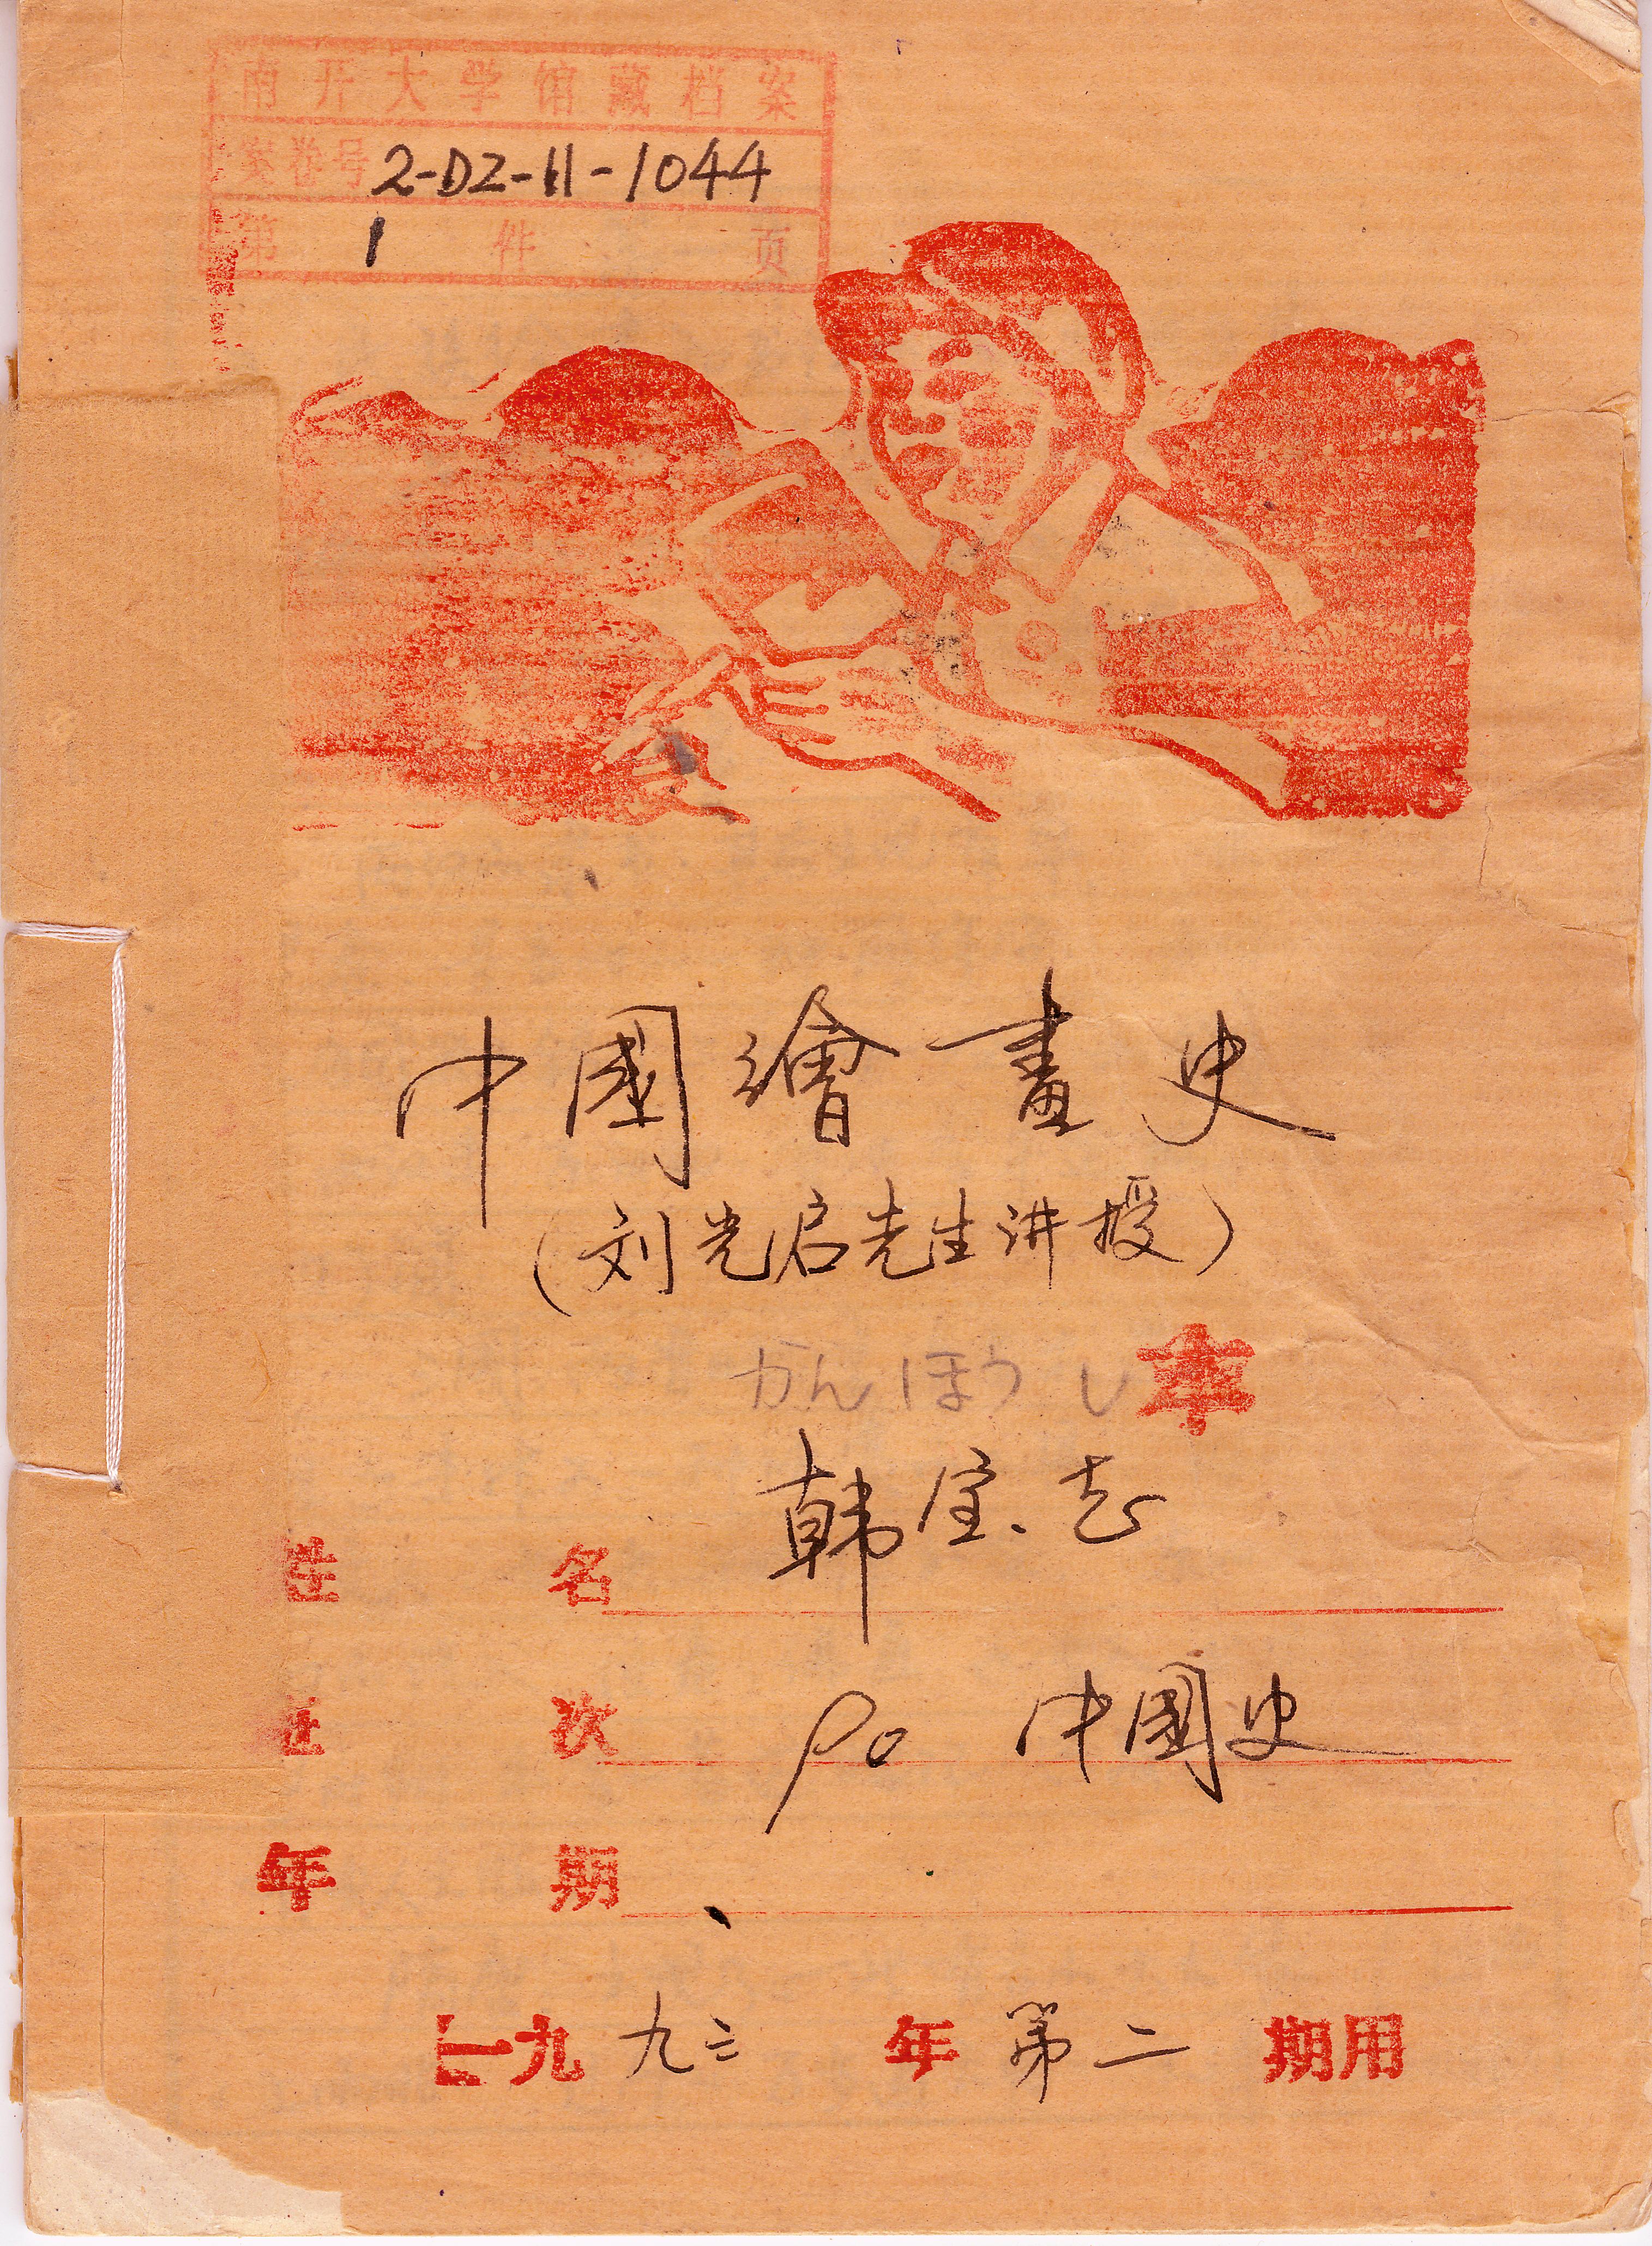 南开大学馆藏档案
案卷号 2-DZ-11-1044
第 1 件 页
中國繪畫史
(刘光启先生讲授)
かんほうし
本
韩宝志
姓 名
班 次 90 中國史
年 期
一九九三年第二期用